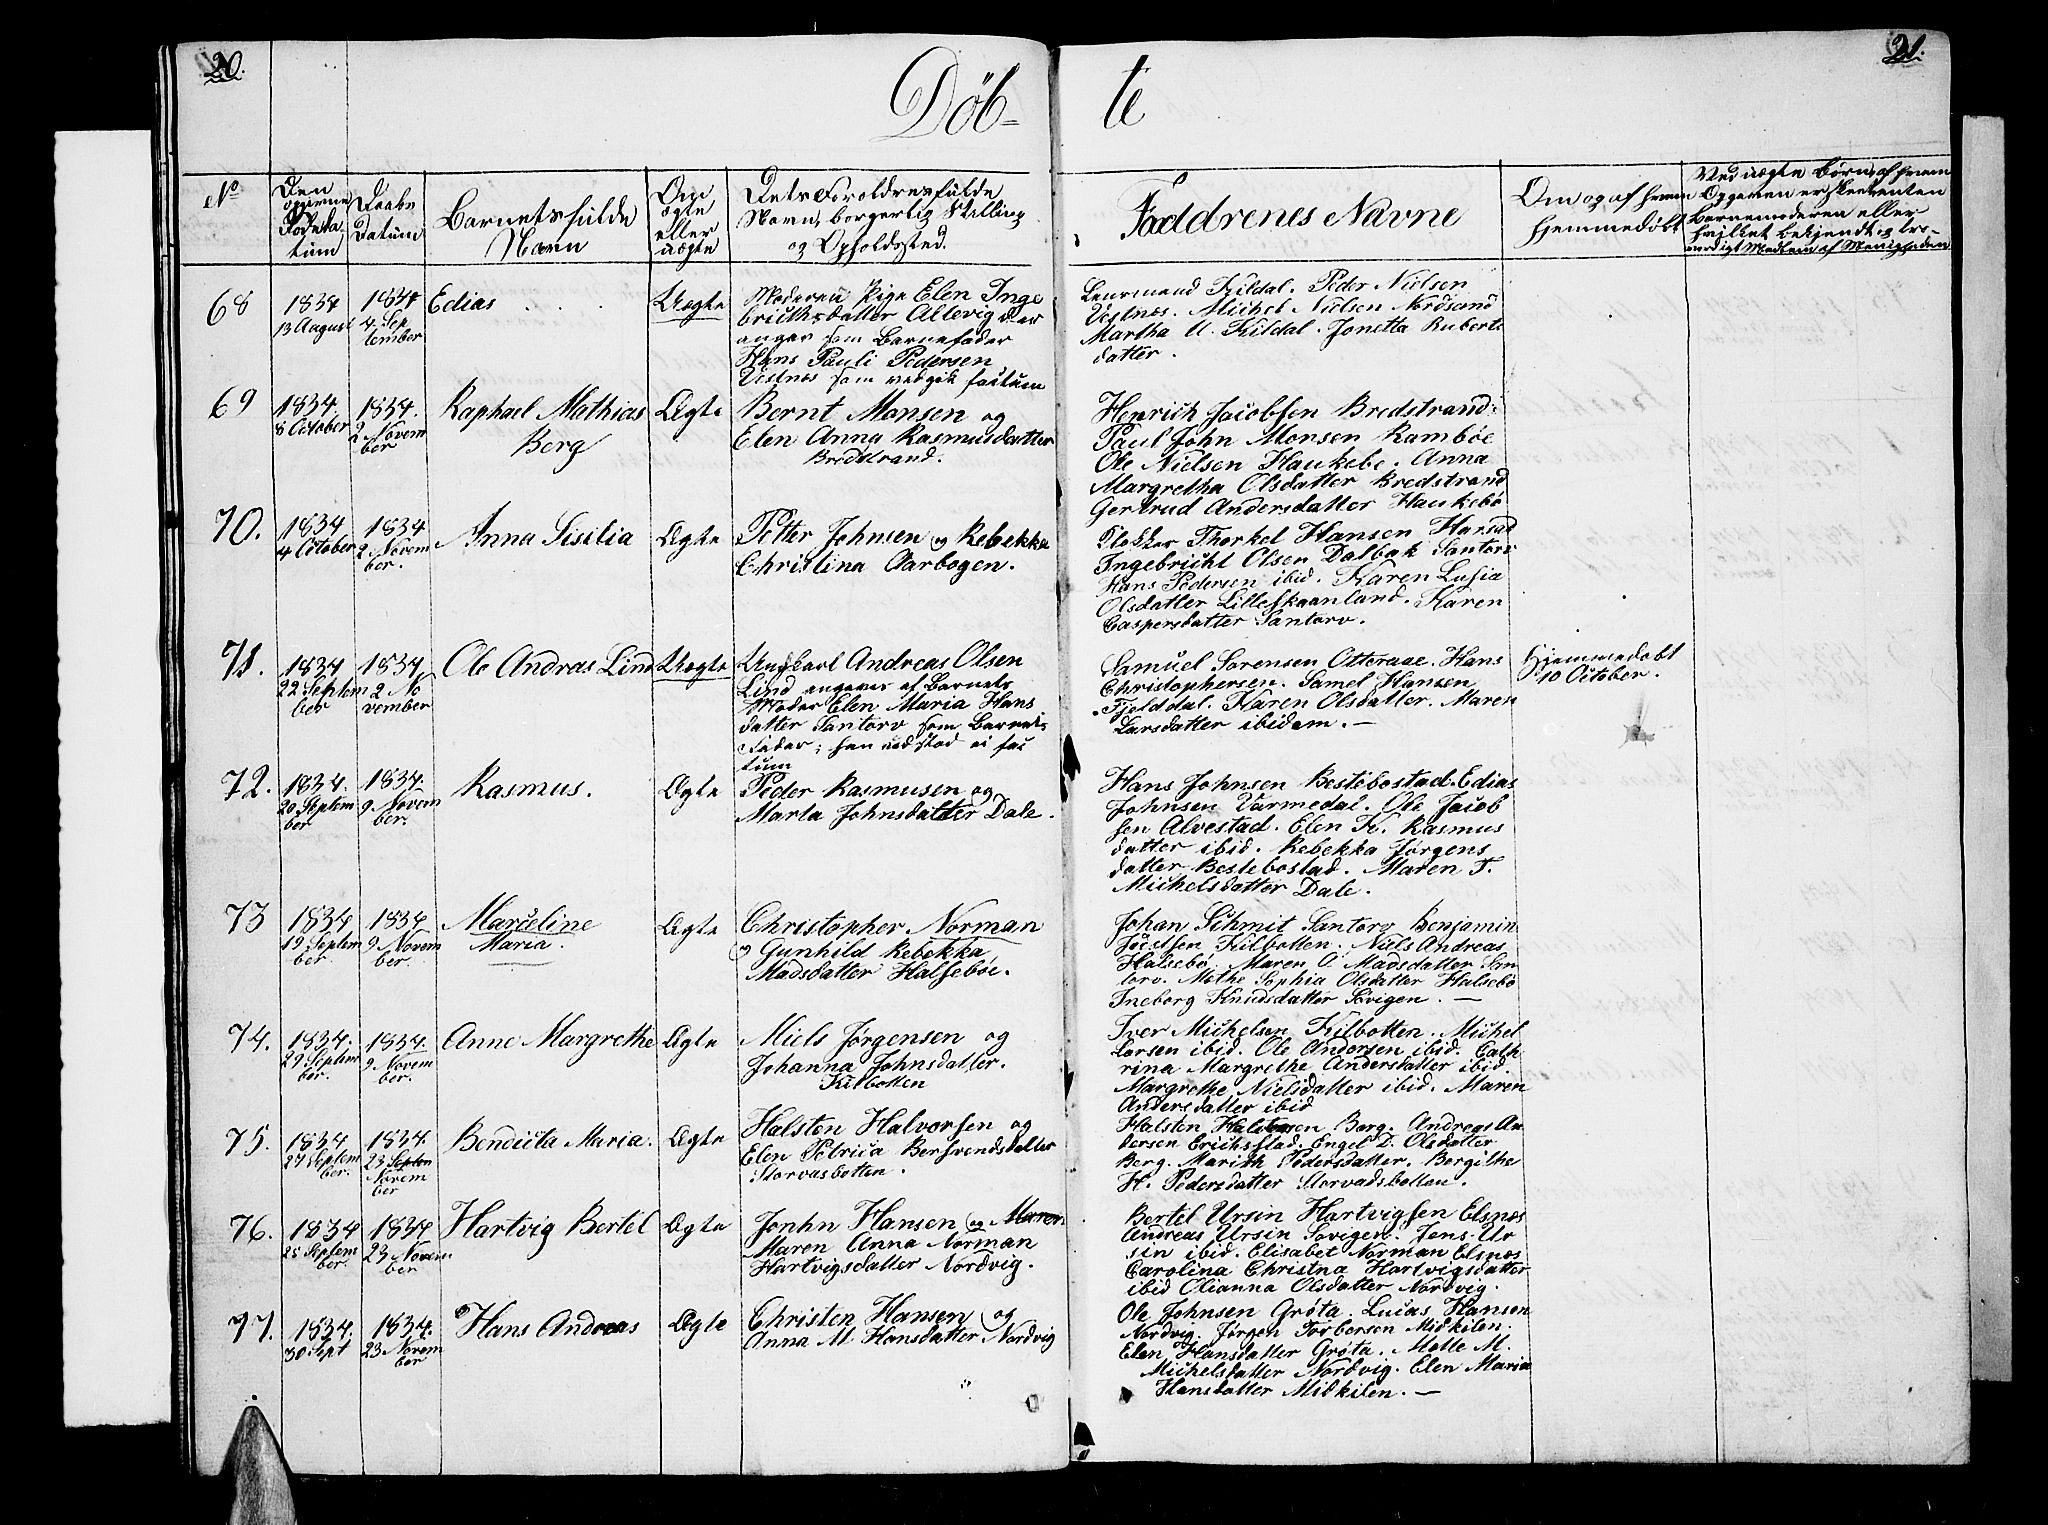 20.
Døb=
te
21.
No
Den
opgivne
Födeda
tum
Daabs
Datum
Barnets fulde
Navn
Om
ægte
eller
uægte
Dets Forældres fulde
Navn, borgerlig Stilling
og Opholdssted.
Faddrenes Navne
Om og af hvem
hjemmedøbt
Ved uægte Børn, af hvem
Opgaven er skeet enten
Barnemoderen eller
hvilket bekjendt og tro-
værdigt Medlem af Menigheden
68
1834
13 August
1834
4 Sep
tember
Edias
Uægte
Moderen Pige Elen Inge
brichtsdatter Altevig der
angav som Barnefader
Hans Pauli Pedersen
Vestnes som vedgik factum
Lensmand Kildal. Peder Nielsen
Vestnes. Michel Nielsen Nordsand
Martha U. Kildal. Jonetta Ruberts
datter.
69
1834.
8 October
1834.
2 Novem
ber
Raphael Mathias
Berg
Ægte
Bernt Monsen og
Elen Anna Rasmusdatter
Bredstrand.
Henrich Jacobsen Bredstrand.
Paul John Monsen Ramböe
Ole Nielsen Haukebø. Anna
Margretha Olsdatter Bredstrand
Gertrud Andersdatter Haukebö
70.
1834
4 October
1834
2 Novem
ber.
Anna Sisilia
Ægte
Petter Johnsen og Rebekka
Christina Aarbogen.
Klokker Thorkel Hansen Harsad
Ingebricht Olsen Dalbak Santorv
Hans Pedersen ibid. Karen Lusia
Olsdatter Lilleskaanland. Karen
Caspersdatter Santorv.
71.
1834
22 Septem
ber
1834
2 No
vember
Ole Andras Lind
Uægte
Ungkarl Andreas Olsen
Lind angaves af Barnets
Moder Elen Maria Hans
datter Santorv som Barnets
Fader; han vedstod ei fac
tum
Samuel Sørensen Otteraae. Hans
Christophersen. Samel Hansen
Fjelddal. Karen Olsdatter. Maren
Larsdatter ibidem. —
Hjemmedøbt
10 October.
72.
1834.
20 Septem
ber
1834.
9. Novem
ber.
Rasmus.
Ægte
Peder Rasmusen og
Marta Johnsdatter Dale.
Hans Johnsen Bestebostad. Edias
Johnsen Varmedal. Ole Jacob
sen Alvestad. Elen K. Rasmus
datter ibid. Rebekka Jørgens
datter Bestebostad. Maren T.
Michelsdatter Dale.
73
1834
19 Septem
ber.
1834
9 Novem
ber.
Marceline
Maria.
Ægte
Christopher Norman
og Gunhild Rebekka
Madsdatter Halsebøe.
Johan Schmit Santorv Benjamin
Joeisen Kilbotten. Niels Andreas
Halsebø. Maren O. Madsdatter San
torv. Methe Sophia Olsdatter Halsebö
Ineborg Knudsdatter Sövigen. —
74.
1834.
29 Septem
ber.
1834.
9 Novem
ber.
Anne Margrethe
Ægte
Niels Jørgensen og
Johanna Johnsdatter.
Kilbotten
Iver Michelsen Kilbotten. Michel
Larsen ibid. Ole Andersen ibid. Cath
rina Margrethe Andersdatter ibid.
Margrethe Nielsdatter ibid. Maren
Andersdatter ibid
75.
1834.
27 Septem
ber.
1834.
23 Septem
Novem
ber
Bendicta Maria.
Ægte
Halsten Halvorsen og
Elen Petrica Bersvendsdatter
Storvasbotten.
Halsten Halstensen Berg. Andreas An
dersen Erichsstad. Engel D. Olsdatter
Berg. Marith Pedersdatter. Bergithe
H. Pedersdatter Storvadsbotten.
76.
1834
25 Septem
ber.
1834
23 Novem
ber
Hartvig Bertel
Ægte
Jonhn Hansen og Maren
Maren Anna Norman
Hartvigsdatter Nordvig.
Bertel Ursin Hartvigsen Elsnes
Andreas Ursin Sovigen. Jens Ur
sin ibid. Elisabet Norman Elsnes
Carolina Christna Hartvigsdatter
ibid Olianna Olsdatter Nordvig.
77.
1834.
30 Sept
1834.
23 Novem
ber
Hans Andreas
Ægte
Christen Hansen og
Anna M. Hansdatter Nordvig
Ole Johnsen Grøta. Lucas Hansen
Nordvig. Jørgen Torbersen Midkilen.
Elen Hansdatter Grøta. Mette M.
Michelsdatter Nordvig. Elen Maria
Hansdatter Midkilen. —